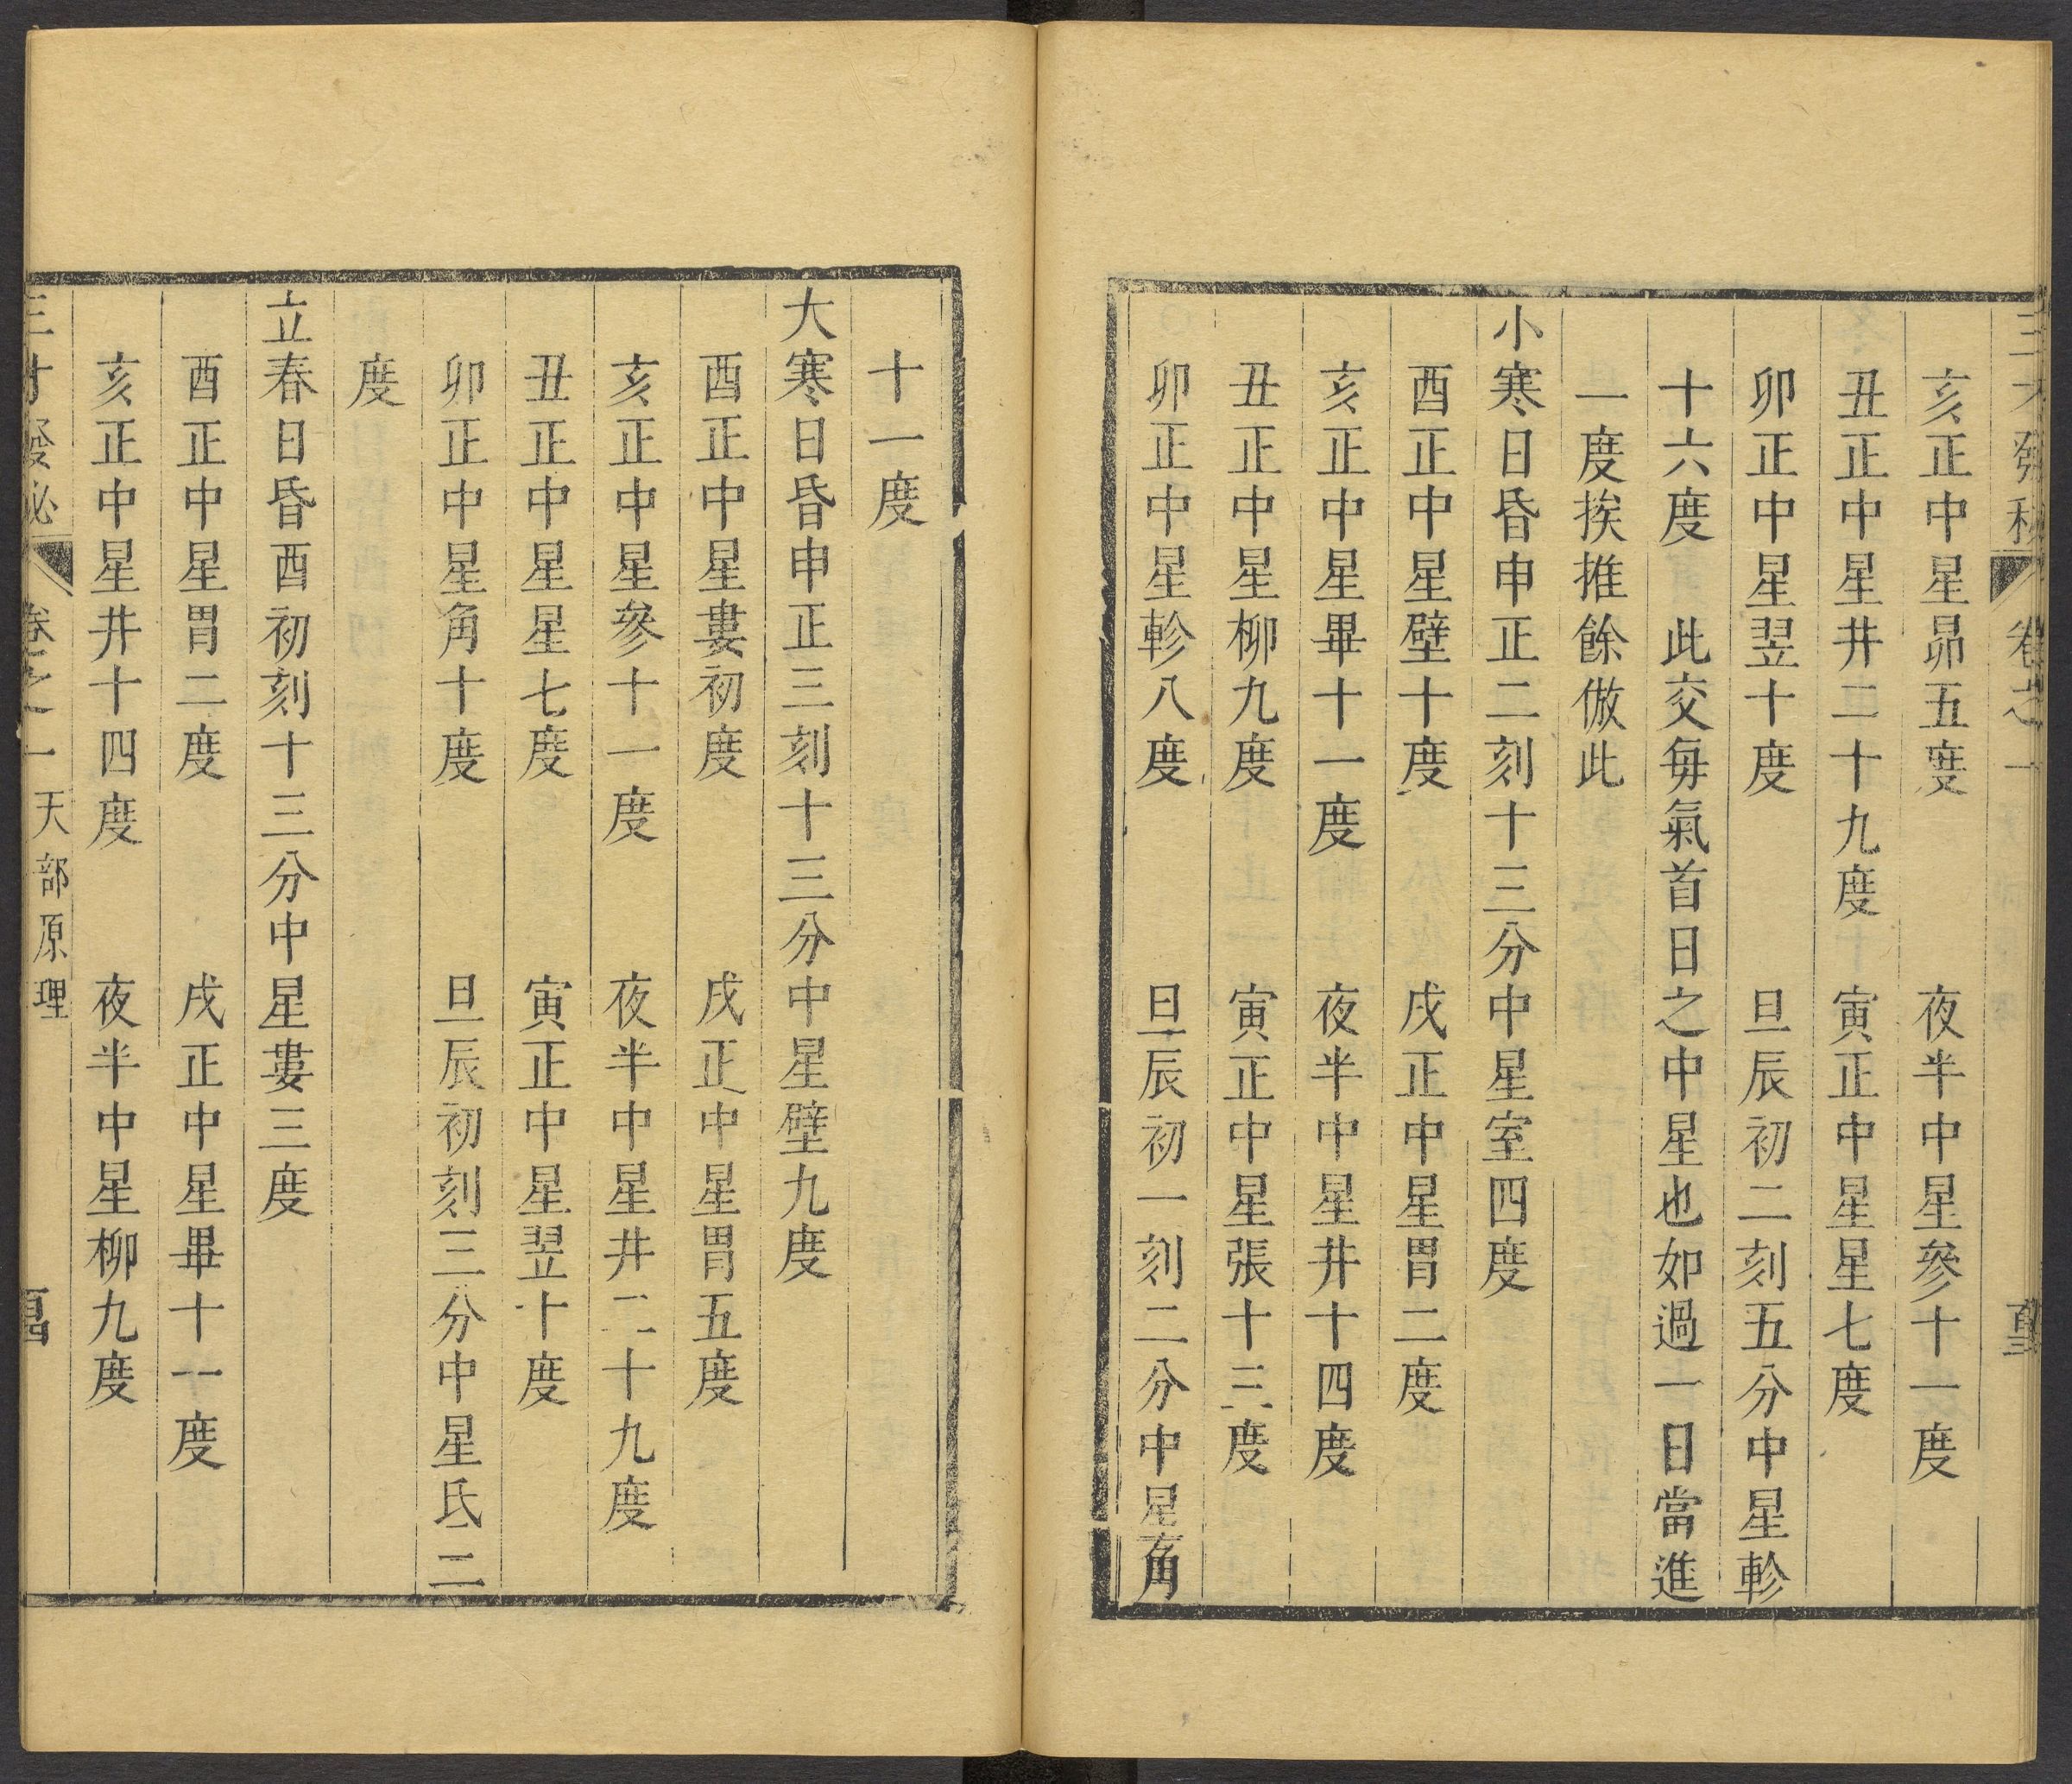 亥正中星昴五度　夜半中星參十一度
丑正中星井二十九度　寅正中星星七度
卯正中星翌十度　旦辰初二刻五分中星軫
十六度　此交每氣首日之中星也如過一日當進
一度挨推餘倣此
小寒日昏申正二刻十三分中星室四度
酉正中星壁十度　戌正中星胃二度
亥正中星畢十一度　夜半中星井十四度
丑正中星柳九度　寅正中星張十三度
卯正中星軫八度　旦辰初一刻二分中星角
十一度
大寒日昏申正三刻十三分中星壁九度
酉正中星婁初度　戌正中星胃五度
亥正中星參十一度　夜半中星井二十九度
丑正中星星七度　寅正中星翌十度
卯正中星角十度　旦辰初刻三分中星氐二
度
立春日昏酉初刻十三分中星婁三度
酉正中星胃二度　戌正中星畢十一度
亥正中星井十四度　夜半中星柳九度
三才發祕　卷之一　天部原理